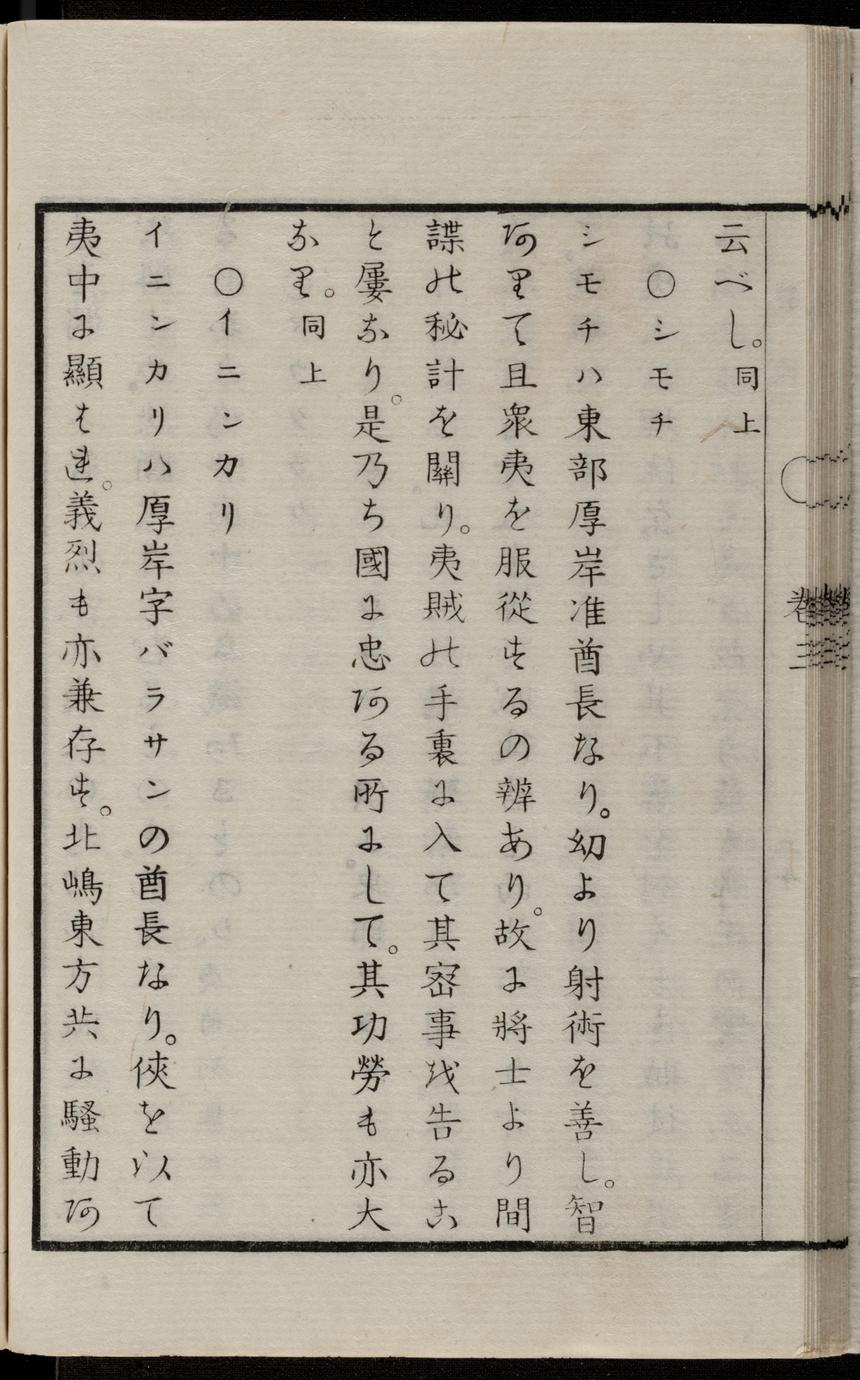 云べし。同上
〇シモチ
シモチハ東部厚岸准酋長なり。幼より射術を善し。智
阿りて且衆夷を服從するの辨あり。故に將士より間
諜の秘計を關り。夷賊の手裏に入て其密事を告るこ
と屢なり。是乃ち國に忠阿る所にして。其功勞も亦大
なり。同上
〇イニンカリ
イニンカリハ厚岸字バラサンの酋長なり。俠を以て
夷中に顯はれ。義烈も亦兼存す。北嶋東方共に騷動阿
卷三